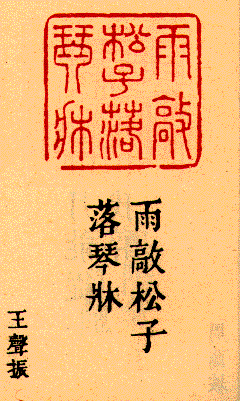 雨敲
松子落
琴牀
雨敲松子
落琴牀
王聲振